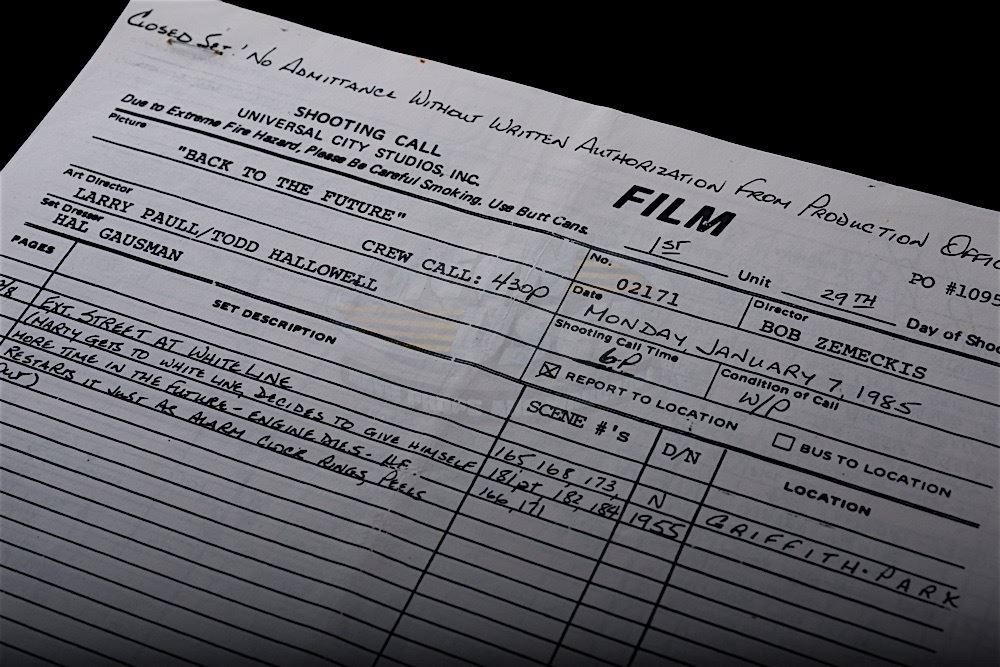 CLOSED SET! NO ADMITTANCE WITHOUT WRITTEN AUTHORIZATION FROM PRODUCTION
SHOOTING CALL
UNIVERSAL CITY STUDIOS, INC.
Due to Extreme Fire Hazard, Please Be Careful Smoking. Use Butt Cans.
FILM
PO #1095
1ST Unit 29TH Day of
Picture
"BACK TO THE FUTURE"
No. 02171
Director
BOB ZEMECKIS
Art Director
LARRY PAULL/TODD HALLOWELL
CREW CALL: 430p
Date
MONDAY JANUARY 7, 1985
Set Dresser
HAL GAUSMAN
Shooting Call Time
6P
Condition of Call
W/P
REPORT TO LOCATION
BUS TO LOCATION
PAGES
SET DESCRIPTION
SCENE #'S
D/N
LOCATION
EXT. STREET AT WHITE LINE
(MARTY GETS TO WHITE LINE, DECIDES TO GIVE HIMSELF
MORE TIME IN THE FUTURE - ENGINE DIES - HE
RESTARTS IT JUST AS ALARM CLOCK RINGS, PEELS
OUT)
165, 168, 173,
181pt, 182, 184
166, 171
N
1955
GRIFFITH PARK